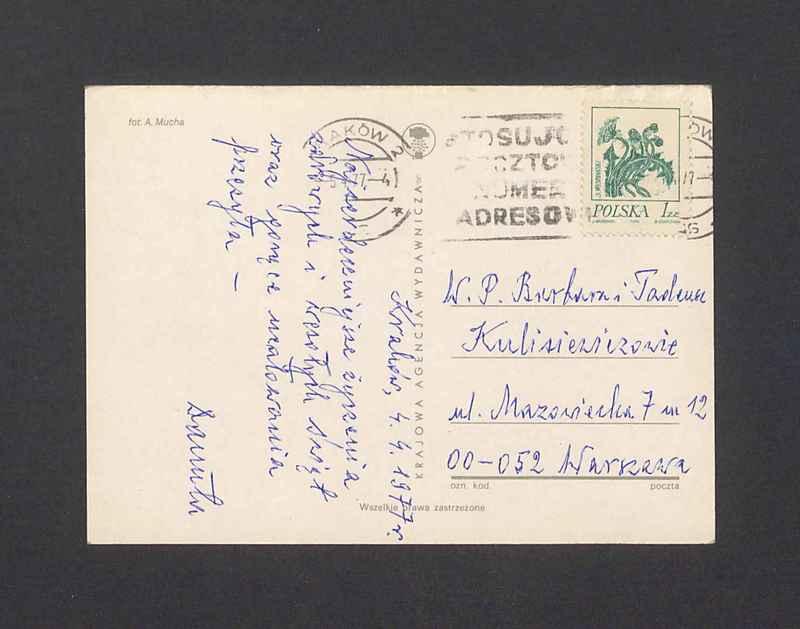 fot. A. Mucha
KRAKÓW 2
STOSUJC
POCZTOW
NUMER
ADRESOW
POLSKA 1 ZŁ
KRAJOWA AGENCJA WYDAWNICZA
Kraków, 4.4.1977 r.
Najserdeczniejsze życzenia
zdrowych i wesołych świąt
oraz gorące ucałowania
przesyła —
Danuta
W. P. Barbara i Tadeusz
Kulisiewiczowie
ul. Mazowiecka 7 m 12
00-052 Warszawa
ozn. kod. poczta
Wszelkie prawa zastrzeżone